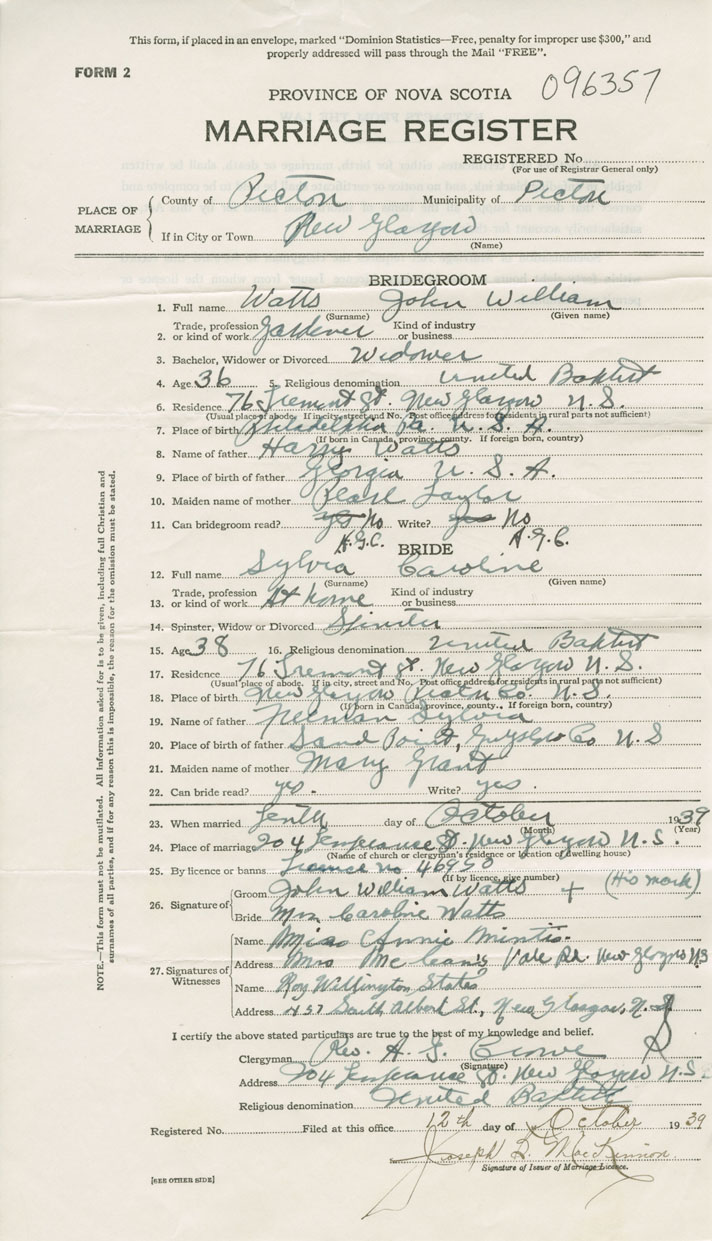 This form, if placed in an envelope, marked "Dominion Statistics—Free, penalty for improper use $300," and
properly addressed will pass through the Mail "FREE".
FORM 2
096357
PROVINCE OF NOVA SCOTIA
MARRIAGE REGISTER
REGISTERED No.
(For use of Registrar General only)
PLACE OF MARRIAGE
County of Pictou Municipality of Pictou
If in City or Town New Glasgow
(Name)
BRIDEGROOM
1. Full name Watts John William
(Surname) (Given name)
2. Trade, profession or kind of work Gardener Kind of industry or business
3. Bachelor, Widower or Divorced Widower
4. Age 36 5. Religious denomination United Baptist
6. Residence 76 Tremont St. New Glasgow N.S.
(Usual place of abode. If in city, street and No. Post office address for residents in rural parts not sufficient)
7. Place of birth Philadelphia Pa. U.S.A.
(If born in Canada, province, county. If foreign born, country)
8. Name of father Harry Watts
9. Place of birth of father Georgia U.S.A.
10. Maiden name of mother Pearl Taylor
11. Can bridegroom read? yes No Write? yes No
A.G.C. A.G.C.
BRIDE
12. Full name Sylvia Caroline
(Surname) (Given name)
13. Trade, profession or kind of work At home Kind of industry or business
14. Spinster, Widow or Divorced Spinster
15. Age 38 16. Religious denomination United Baptist
17. Residence 76 Tremont St. New Glasgow N.S.
(Usual place of abode. If in city, street and No. Post office address for residents in rural parts not sufficient)
18. Place of birth New Glasgow Pictou Co. N.S.
(If born in Canada, province, county. If foreign born, country)
19. Name of father Sylvia
20. Place of birth of father Sand Point, Guysboro Co N.S
21. Maiden name of mother Mary Grant
22. Can bride read? yes - Write? yes.
23. When married Tenth day of October 1939
(Month) (Year)
24. Place of marriage 204 Temperance St. New Glasgow N.S.
(Name of church or clergyman's residence or location of dwelling house)
25. By licence or banns License no 46950
(If by licence, give number)
26. Signature of
Groom John William Watts + (His mark)
Bride Mrs Caroline Watts
27. Signatures of Witnesses
Name Miss Annie Mintis
Address Mrs McCean's Vale Rd. New Glasgow NS
Name Roy Willington States
Address 457 South Albert St., New Glasgow, N.S
I certify the above stated particulars are true to the best of my knowledge and belief.
Clergyman Rev. A. G. Crowe
(Signature)
Address 204 Temperance St. New Glasgow N.S.
Religious denomination United Baptist
Registered No. Filed at this office 12th day of October 1939
Joseph D. MacKinnon
Signature of Issuer of Marriage Licence.
[SEE OTHER SIDE]
NOTE.—This form must not be mutilated. All information asked for is to be given, including full Christian and
surnames of all parties, and if for any reason this is impossible, the reason for the omission must be stated.